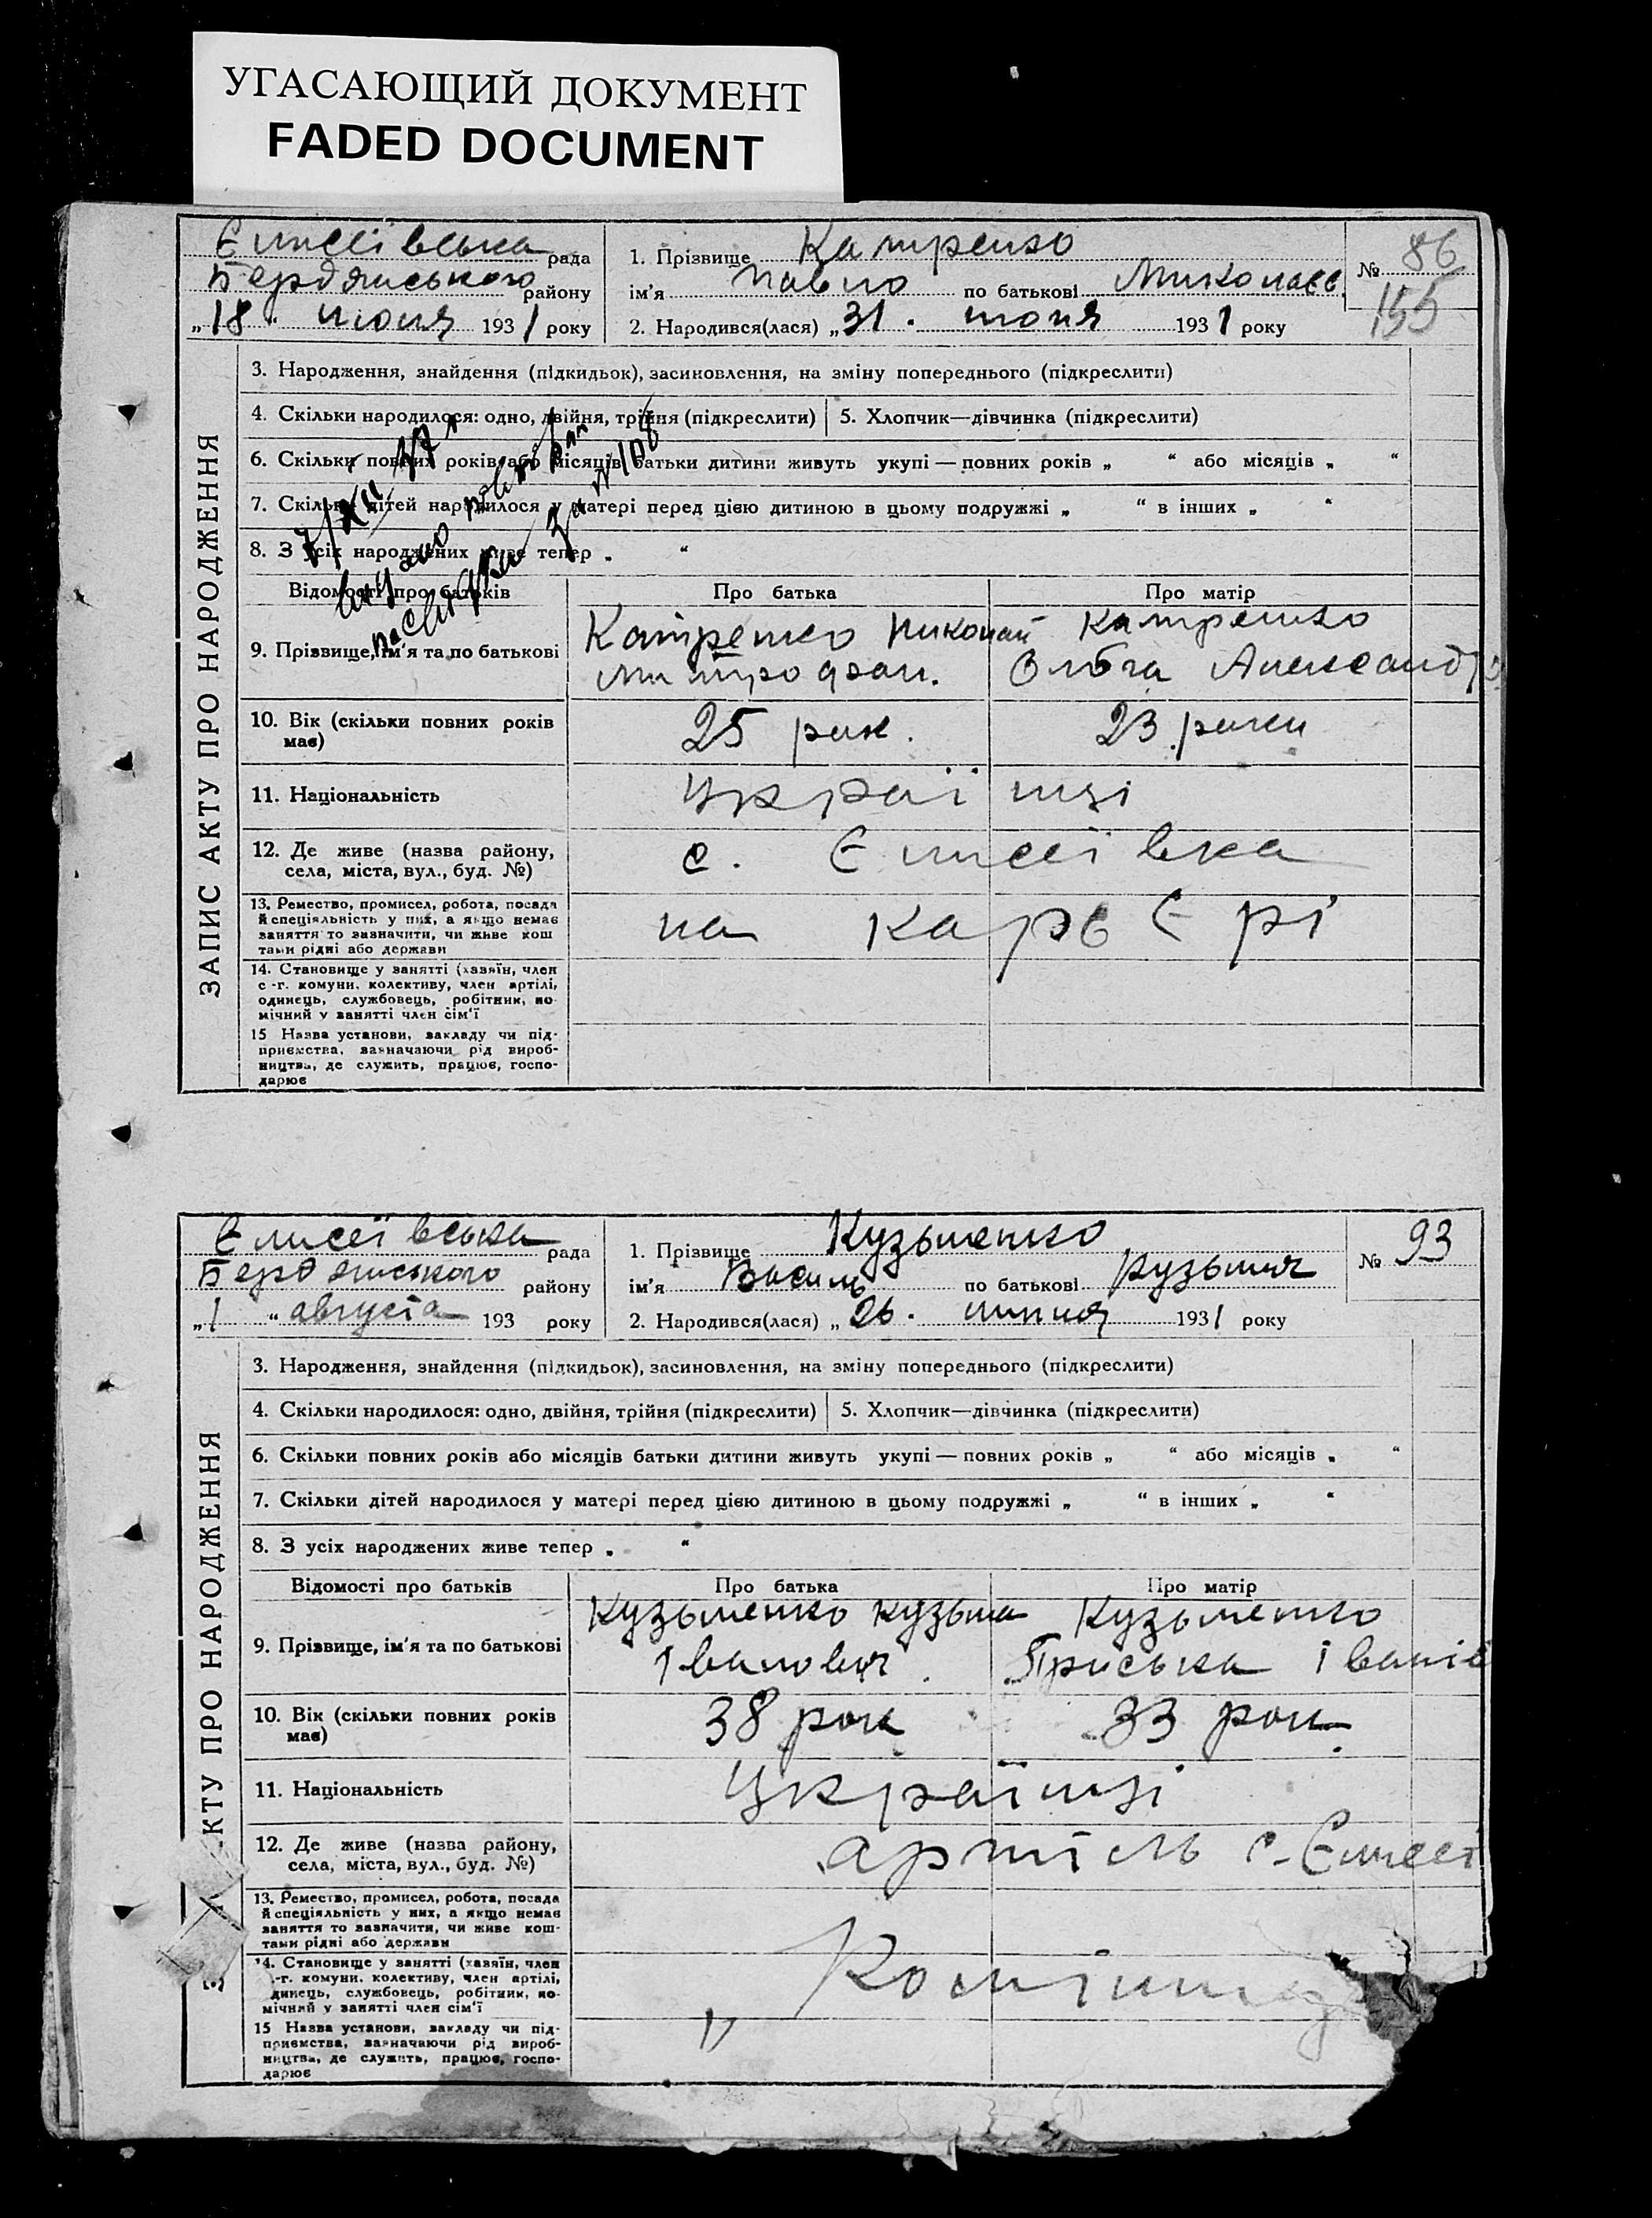 УГАСАЮЩИЙ ДОКУМЕНТ
FADED DOCUMENT
Єлисеївська рада
Бердянського району
„18“ июля 1931 року
1. Прізвище Катренко
ім'я Павло по батькові Миколаєв.
2. Народився(лася) „31. июня 1931 року
№ 86
155
ЗАПИС АКТУ ПРО НАРОДЖЕННЯ
3. Народження, знайдення (підкидьок), засиновлення, на зміну попереднього (підкреслити)
4. Скільки народилося: одно, двійня, трійня (підкреслити) 5. Хлопчик—дівчинка (підкреслити)
6. Скільки повних років або місяців батьки дитини живуть укупі — повних років „ “ або місяців „ “
7. Скільки дітей народилося у матері перед цією дитиною в цьому подружжі „ “ в інших „ “
8. З усіх народжених живе тепер „ “
Відомості про батьків Про батька Про матір
9. Прізвище, ім'я та по батькові
Катренко Николай
Митрофан.
Катренко
Ольга Александр
10. Вік (скільки повних років має) 25 рок. 23 роки
11. Національність Україінці
12. Де живе (назва району,
села, міста, вул., буд. №) с. Єлисеївка
13. Ремество, промисел, робота, посада
й спеціяльність у них, а якщо немає
заняття то зазначити, чи живе кош
тами рідні або держави
на карьЄрі
14. Становище у занятті (хазяїн, член
с-г. комуни, колективу, член артілі,
одинець, службовець, робітник, по-
мічний у занятті член сім'ї
15 Назва установи, закладу чи під-
приємства, зазначаючи рід вироб-
ництва, де служить, працює, госпо-
дарює
Єлисеївська рада
Бердянського району
„1“ августа 193 року
1. Прізвище Кузьменко
ім'я Василь по батькові Кузьмич
2. Народився(лася) „26. липня 1931 року
№ 93
КТУ ПРО НАРОДЖЕННЯ
3. Народження, знайдення (підкидьок), засиновлення, на зміну попереднього (підкреслити)
4. Скільки народилося: одно, двійня, трійня (підкреслити) 5. Хлопчик—дівчинка (підкреслити)
6. Скільки повних років або місяців батьки дитини живуть укупі — повних років „ “ або місяців „ “
7. Скільки дітей народилося у матері перед цією дитиною в цьому подружжі „ “ в інших „ “
8. З усіх народжених живе тепер „ “
Відомості про батьків Про батька Про матір
9. Прізвище, ім'я та по батькові
Кузьменко Кузьма
Іванович
Кузьменко
Приська Іванів
10. Вік (скільки повних років має) 38 рок 33 рок
11. Національність Українці
12. Де живе (назва району,
села, міста, вул., буд. №) артіль с. Єлисеї
13. Ремество, промисел, робота, посада
й спеціяльність у них, а якщо немає
заняття то зазначити, чи живе кош-
тами рідні або держави
14. Становище у занятті (хазяїн, член
-г. комуни, колективу, член артілі,
динець, службовець, робітник, по-
мічний у занятті член сім'ї
15 Назва установи, закладу чи під-
приємства, зазначаючи рід вироб-
ництва, де служить, працює, госпо-
дарює